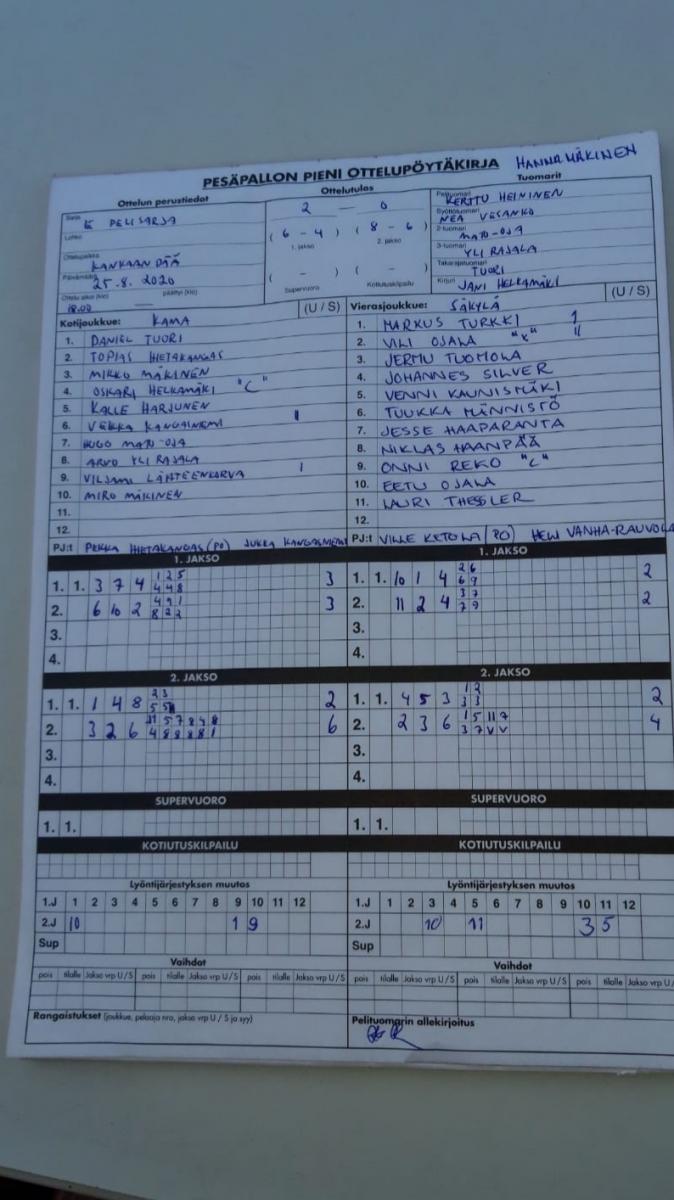 PESÄPALLON PIENI OTTELUPÖYTÄKIRJA HANNA MÄKINEN
Ottelun perustiedot
Ottelutulos
Tuomarit
Sarja
E PELISARJA
Lohko
Ottelupaikka
KANKAANPÄÄ
Päivämäärä
25.8.2020
Ottelu alkoi (klo) päättyi (klo)
18.00
2 – 0
( 6 – 4 ) ( 8 – 6 )
1. jakso 2. jakso
( – ) ( – )
Supervuoro Kotiutuskilpailu
Pelituomari
KERTTU HEININEN
Syöttötuomari
NEA VESANKO
2-tuomari
MATO-OJA
3-tuomari
YLI RAJALA
Takarajatuomari
TUORI
Kirjuri JANI HELKAMÄKI
Kotijoukkue: KAMA (U / S)
1. DANIEL TUORI
2. TOPIAS HIETAKANGAS
3. MIKKO MÄKINEN
4. OSKARI HELKAMÄKI "C"
5. KALLE HARJUNEN
6. VEIKKA KANGASNIEMI I
7. HUGO MATO-OJA
8. ARVO YLI RAJALA
9. VILJAMI LÄHTEENKORVA I
10. MIRO MÄKINEN
11.
12.
PJ:t PEKKA HIETAKANGAS (PO) JUKKA KANGASNIEMI
Vierasjoukkue: SÄKYLÄ (U / S)
1. MARKUS TURKKI 1
2. VILI OJALA "K" II
3. JERMU TUOMOLA
4. JOHANNES SILVER
5. VENNI KAUNISMÄKI
6. TUUKKA MÄNNISTÖ
7. JESSE HAAPARANTA
8. NIKLAS HAANPÄÄ
9. ONNI REKO "C"
10. EETU OJALA
11. LAURI THESSLER
12.
PJ:t VILLE KETOLA (PO) HELI VANHA-RAUVOLA
1. JAKSO
1. 1. 3 7 4 1 2 5 3
4 4 8
2. 6 10 2 4 9 1 3
8 2 2
3.
4.
1. JAKSO
1. 1. 10 1 4 2 6 2
6 9
2. 11 2 4 3 7 2
7 9
3.
4.
2. JAKSO
1. 1. 1 4 8 2 3 2
2. 3 2 6 11 5 7 8 4 8 6
4 8 8 8 8 1
3.
4.
2. JAKSO
1. 1. 4 5 3 1 2 2
3 3
2. 2 3 6 1 5 11 7 4
3 7 V V
3.
4.
SUPERVUORO
1. 1.
SUPERVUORO
1. 1.
KOTIUTUSKILPAILU
KOTIUTUSKILPAILU
Lyöntijärjestyksen muutos
1.J 1 2 3 4 5 6 7 8 9 10 11 12
2.J 10 1 9
Sup
Lyöntijärjestyksen muutos
1.J 1 2 3 4 5 6 7 8 9 10 11 12
2.J 10 11 3 5
Sup
Vaihdot
pois tilalle Jakso vrp U / S pois tilalle Jakso vrp U / S pois tilalle Jakso vrp U / S
Vaihdot
pois tilalle Jakso vrp U / S pois tilalle Jakso vrp U / S pois tilalle Jakso vrp U / S
Rangaistukset (joukkue, pelaaja nro, jakso vrp U / S ja syy)
Pelituomarin allekirjoitus